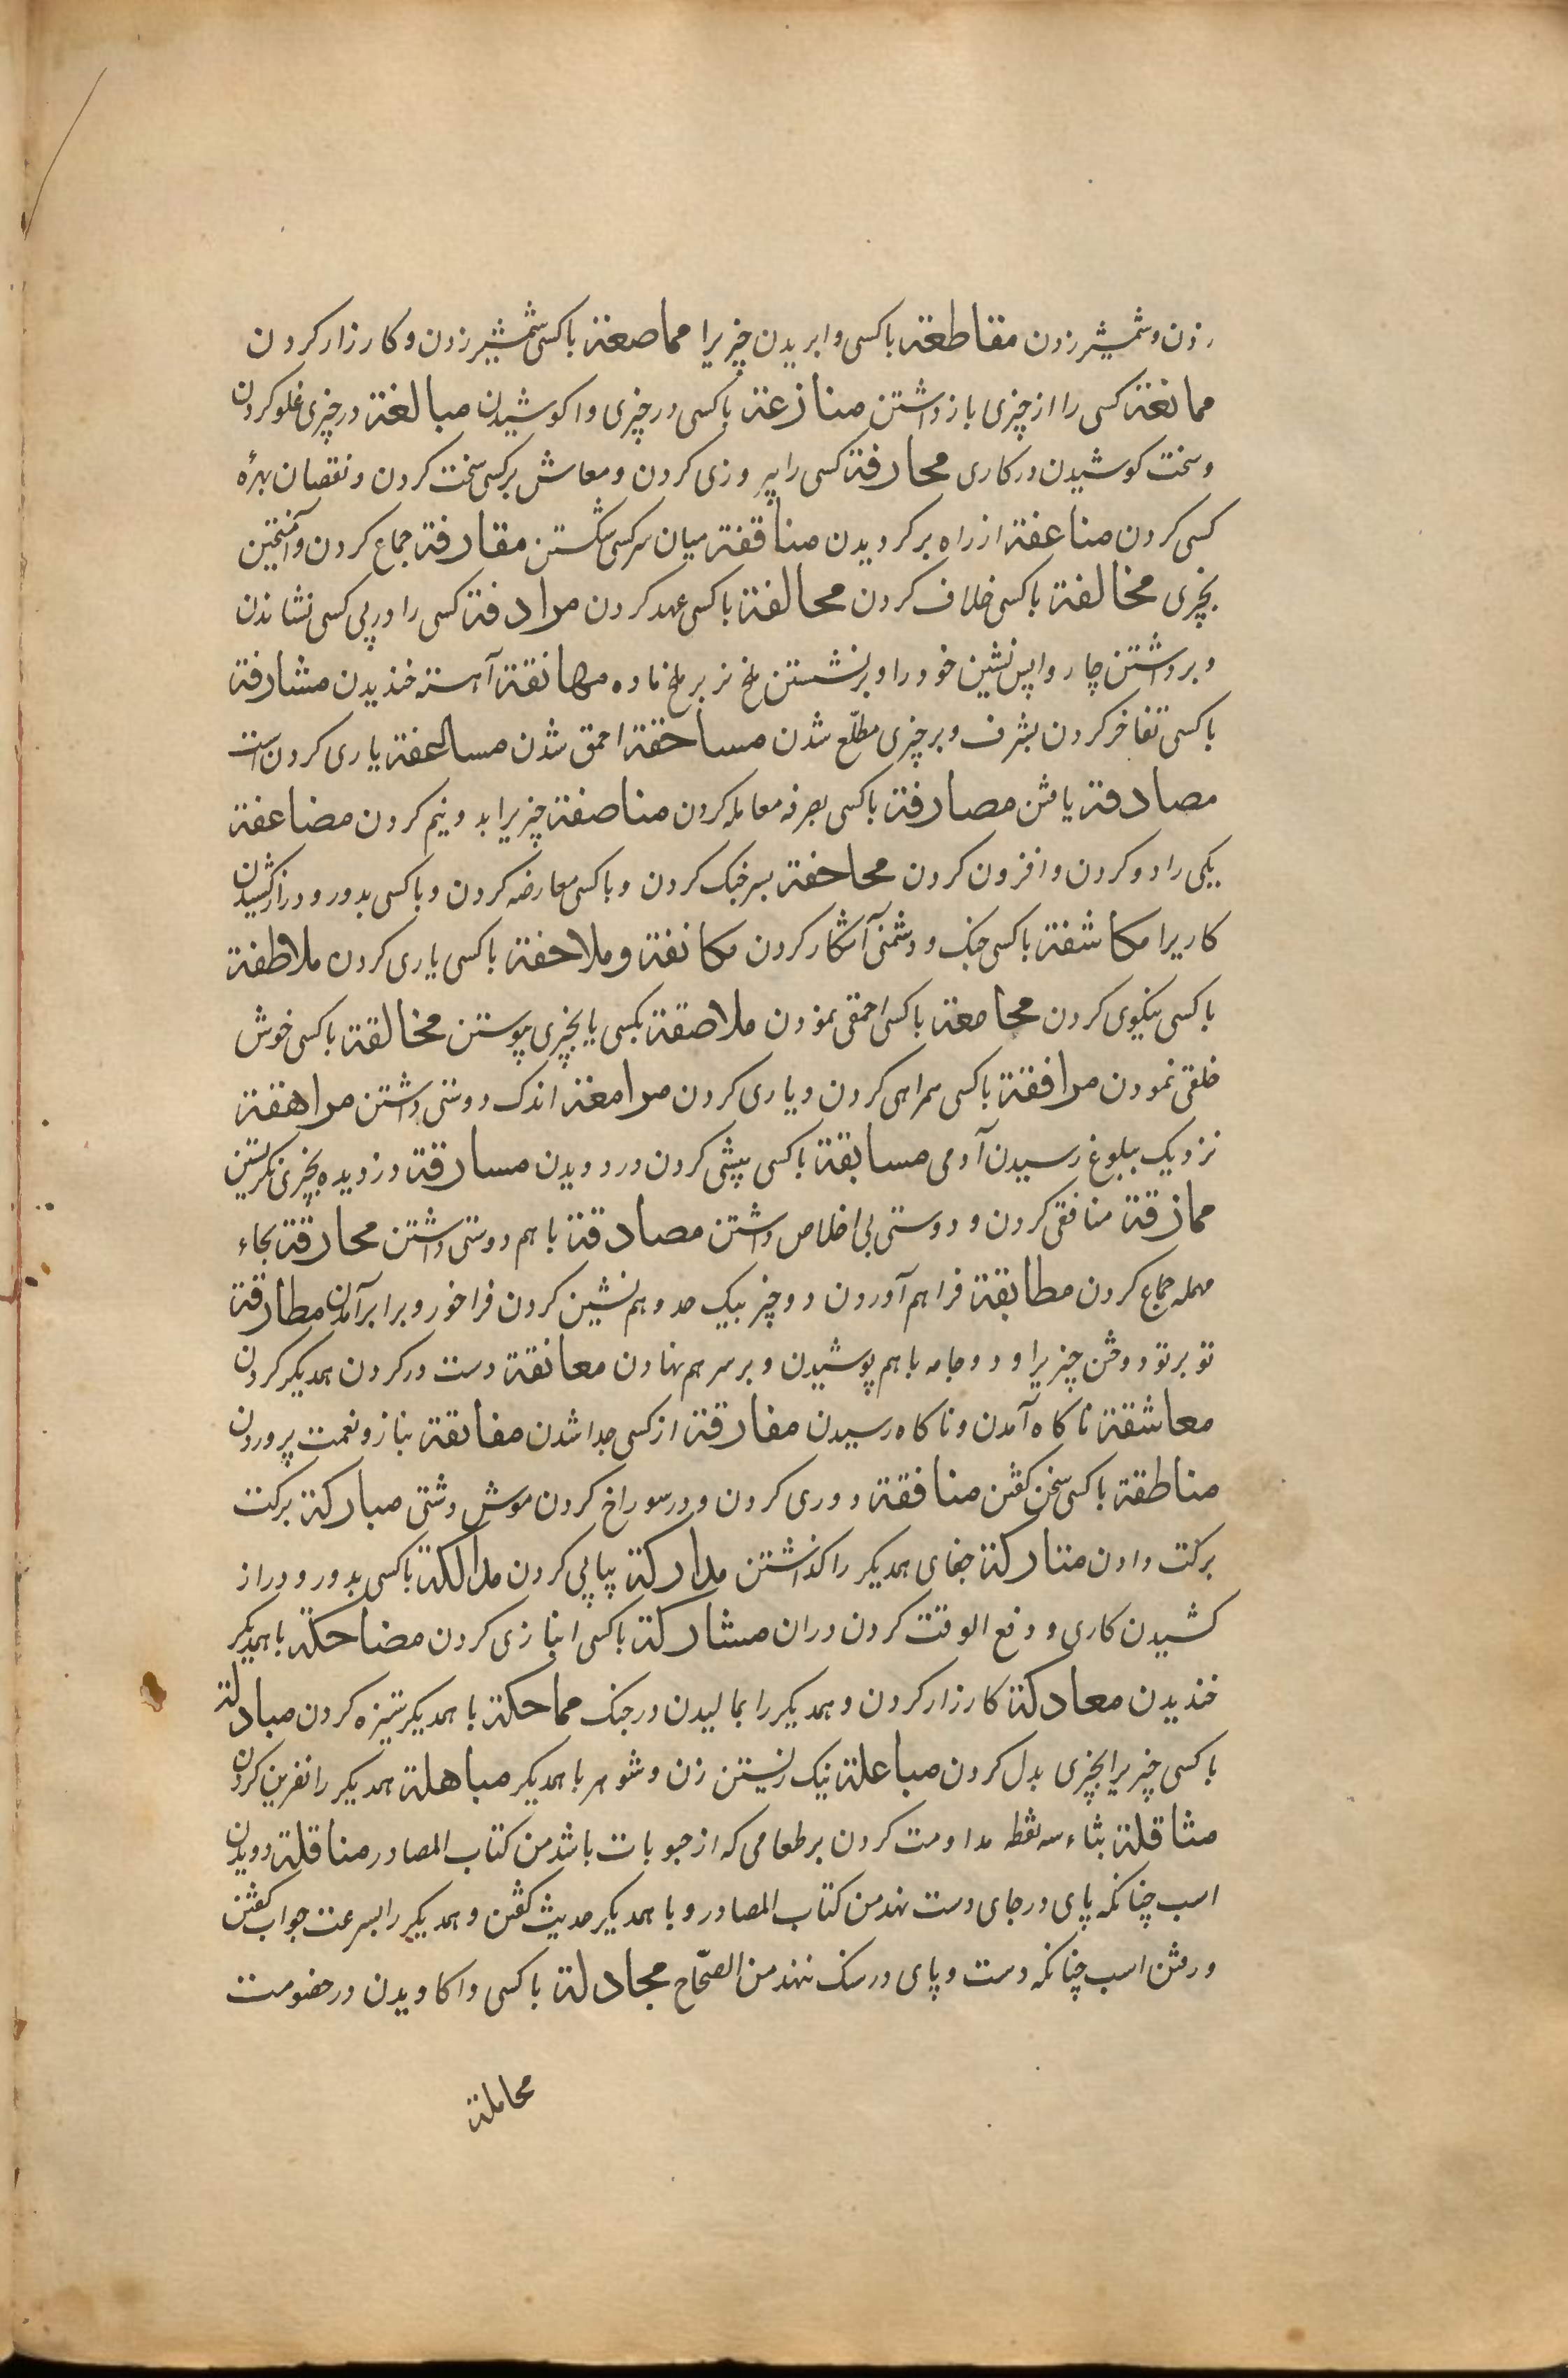 زدن وشمشیر زدن مقاطعة باکسی وابریدن چیزیرا مماصعة باکسی شمشیر زدن وکارزار کردن
ممانعة کسی را از چیزی بازداشتن منازعة باکسی در چیزی واکوشیدن مبالغة در چیزی غلو کردن
وسخت کوشیدن در کاری محارفة کسی را پیروزی کردن ومعاش برکسی سخت کردن ونقصان بهرهٔ
کسی کردن مناعفة از راه برکردیدن مناقفة میان سر کسی شکستن مقارفة جماع کردن وآمیختن
بچیزی مخالفة باکسی خلاف کردن محالفة باکسی عهد کردن مرادفة کسی را در پی کسی نشاندن
وبرداشتن چاروا پس نشین خود را وبرنشستن ملخ نر بر ملخ ماده مهانقة آهسته خندیدن مشارفة
باکسی تفاخر کردن بشرف وبر چیزی مطلّع شدن مساحقة احمق شدن مسالعفة یاری کردن است
مصادفة یافتن مصارفة باکسی بصرفه معامله کردن مناصفة چیزیرا بدو نیم کردن مضاعفة
یکی را دو کردن وافزون کردن محاحفة بسر جنک کردن وباکسی معارضه کردن وباکسی بدور ودراز کشیدن
کاریرا مکاشفة باکسی جنک ودشمنی آشکار کردن مکانفة وملاحفة باکسی یاری کردن ملاطفة
باکسی نیکویی کردن محامعة باکسی احمقی نمودن ملاصقة بکسی یا بچیزی پیوستن مخالقة باکسی خوش
خلقی نمودن مرافقة باکسی همراهی کردن ویاری کردن مرامغة اندک دوستی داشتن مراهقة
نزدیک ببلوغ رسیدن آدمی مسابقة باکسی پیشی کردن در دویدن مسارقة دزدیده بچیزی نکریستن
ممازقة منافقی کردن ودوستی بی اخلاص داشتن مصادقة باهم دوستی داشتن محارقة بحاء
مهمله جماع کردن مطابقة فراهم آوردن دو چیز بیک حد وهم نشین کردن فراخور وبرابر آمدن مطارقة
تو بر تو دوختن چیزیرا ودو جامه باهم پوشیدن وبر سر هم نهادن معانقة دست در کردن همدیکر کردن
معاشقة ناکاه آمدن وناکاه رسیدن مفارقة از کسی جدا شدن مفانقة بناز ونعمت پروردن
مناطقة باکسی سخن کفتن منافقة دوری کردن ودر سوراخ کردن موش دشتی مبارکة برکت
برکت دادن متارکة جفای همدیکر را کذاشتن مدارکة پیاپی کردن مدالکة باکسی بدور ودراز
کشیدن کاری ودفع الوقت کردن دران مشارکة باکسی انبازی کردن مضاحکة باهمدیکر
خندیدن معادکة کارزار کردن وهمدیکر را بمالیدن در جنک مماحکة باهمدیکر ستیزه کردن مبادلة
باکسی چیزیرا بچیزی بدل کردن مباعلة نیک زیستن زن وشوهر باهمدیکر مباهلة همدیکر را نفرین کردن
مثاقلة بثاء سه نقطه مداومت کردن بر طعامی که از حبوبات باشد من کتاب المصادر مناقلة دویدن
اسب چنانکه پای در جای دست نهد من کتاب المصادر وباهمدیکر حدیث کفتن وهمدیکر را بسرعت جواب کفتن
ورفتن اسب چنانکه دست وپای در سنک ننهد من الصحّاح مجادلة باکسی واکاویدن در خصومت
محاملة